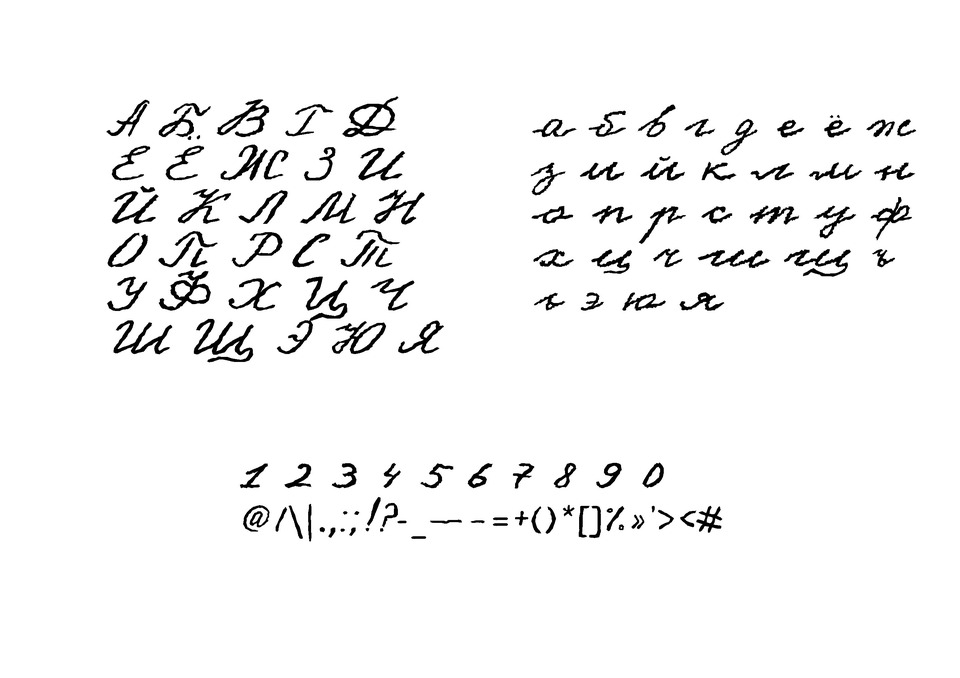 А Б В Г Д
Е Ё Ж З И
Й К Л М Н
О П Р С Т
У Ф Х Ц Ч
Ш Щ Э Ю Я
а б в г д е ё ж
з и й к л м н
о п р с т у ф
х ц ч ш щ ъ
ь э ю я
1 2 3 4 5 6 7 8 9 0
@/\|.,:;!?-_—–=+()*[]%»'><#